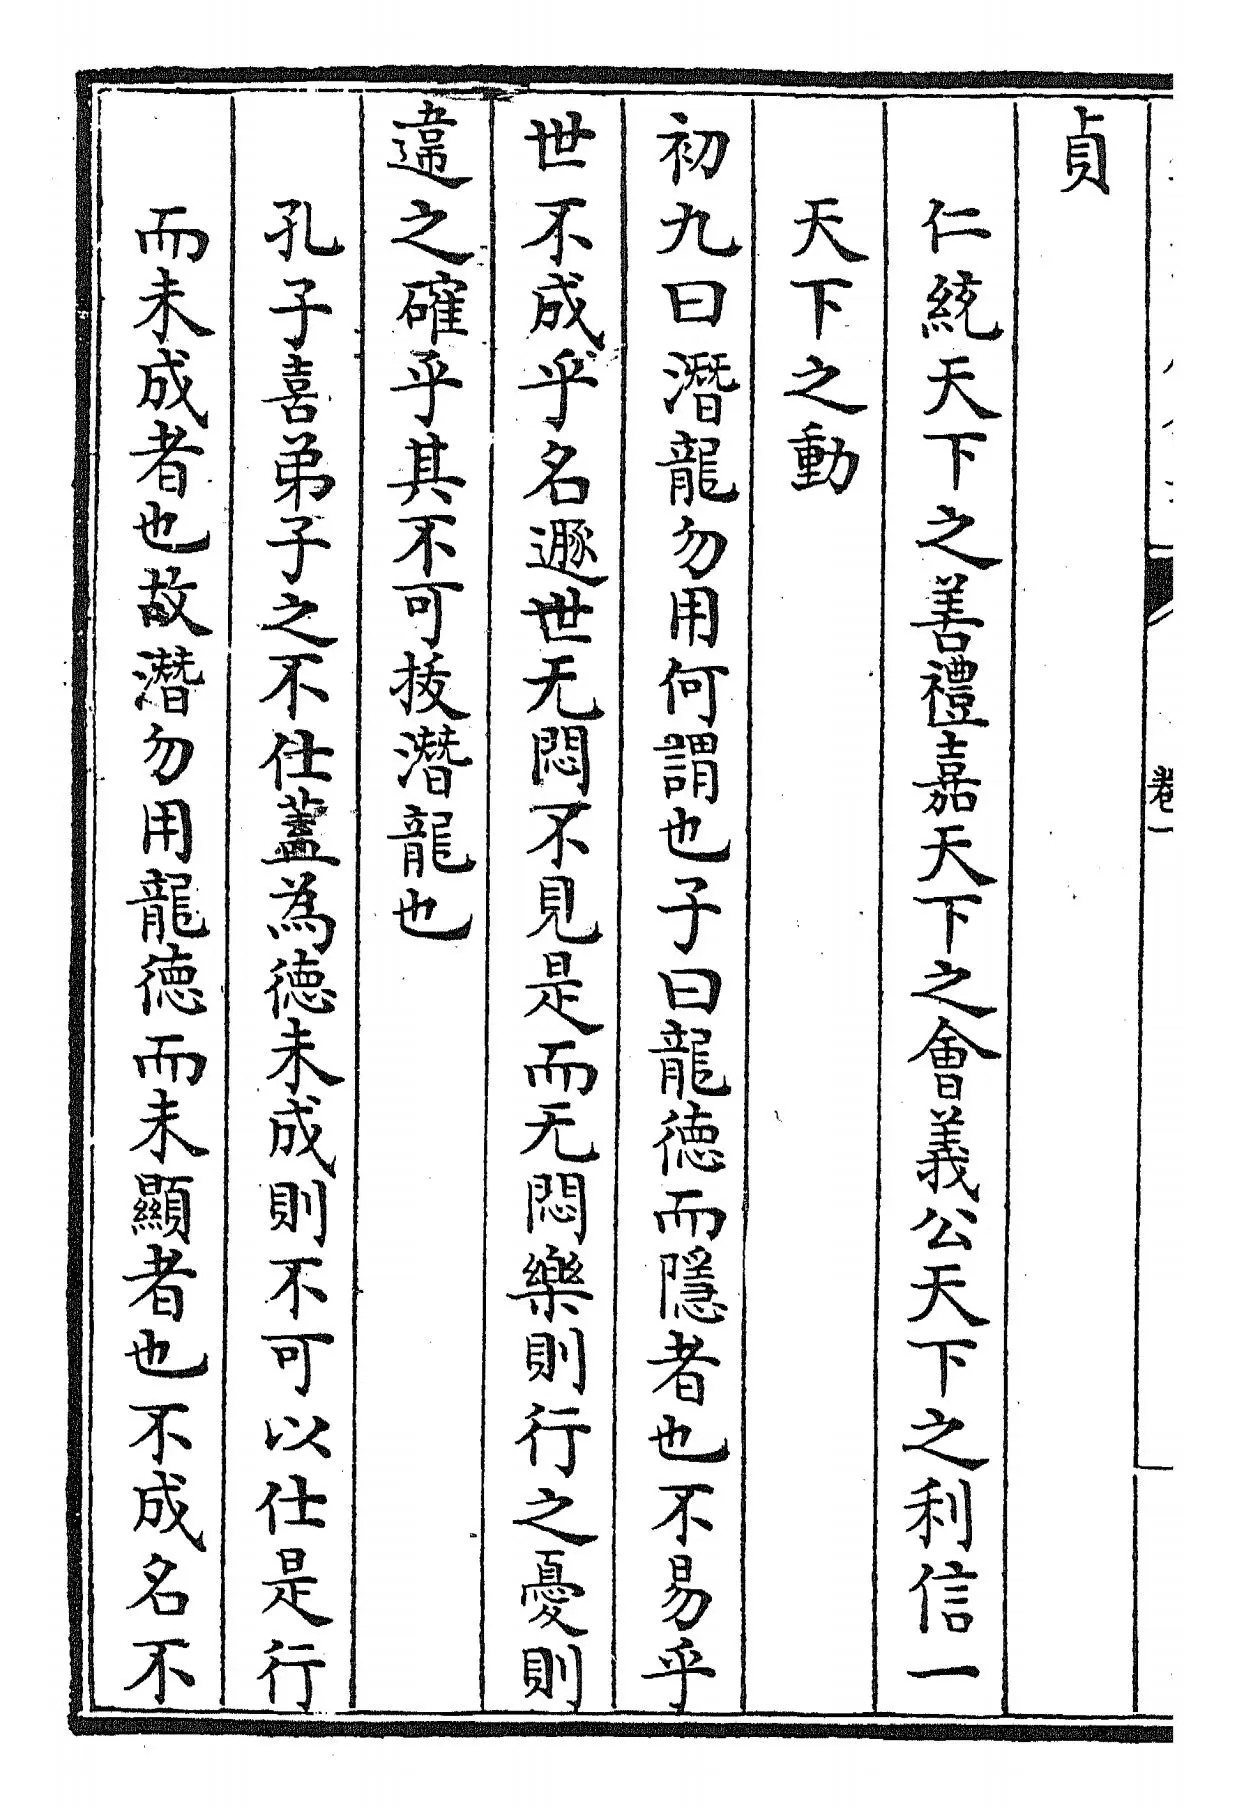 貞
仁統天下之善禮嘉天下之會義公天下之利信一
天下之動
初九曰潛龍勿用何謂也子曰龍德而隱者也不易乎
世不成乎名遯世无悶不見是而无悶樂則行之憂則
違之確乎其不可拔潛龍也
孔子喜弟子之不仕蓋為德未成則不可以仕是行
而未成者也故潛勿用龍德而未顯者也不成名不
卷一